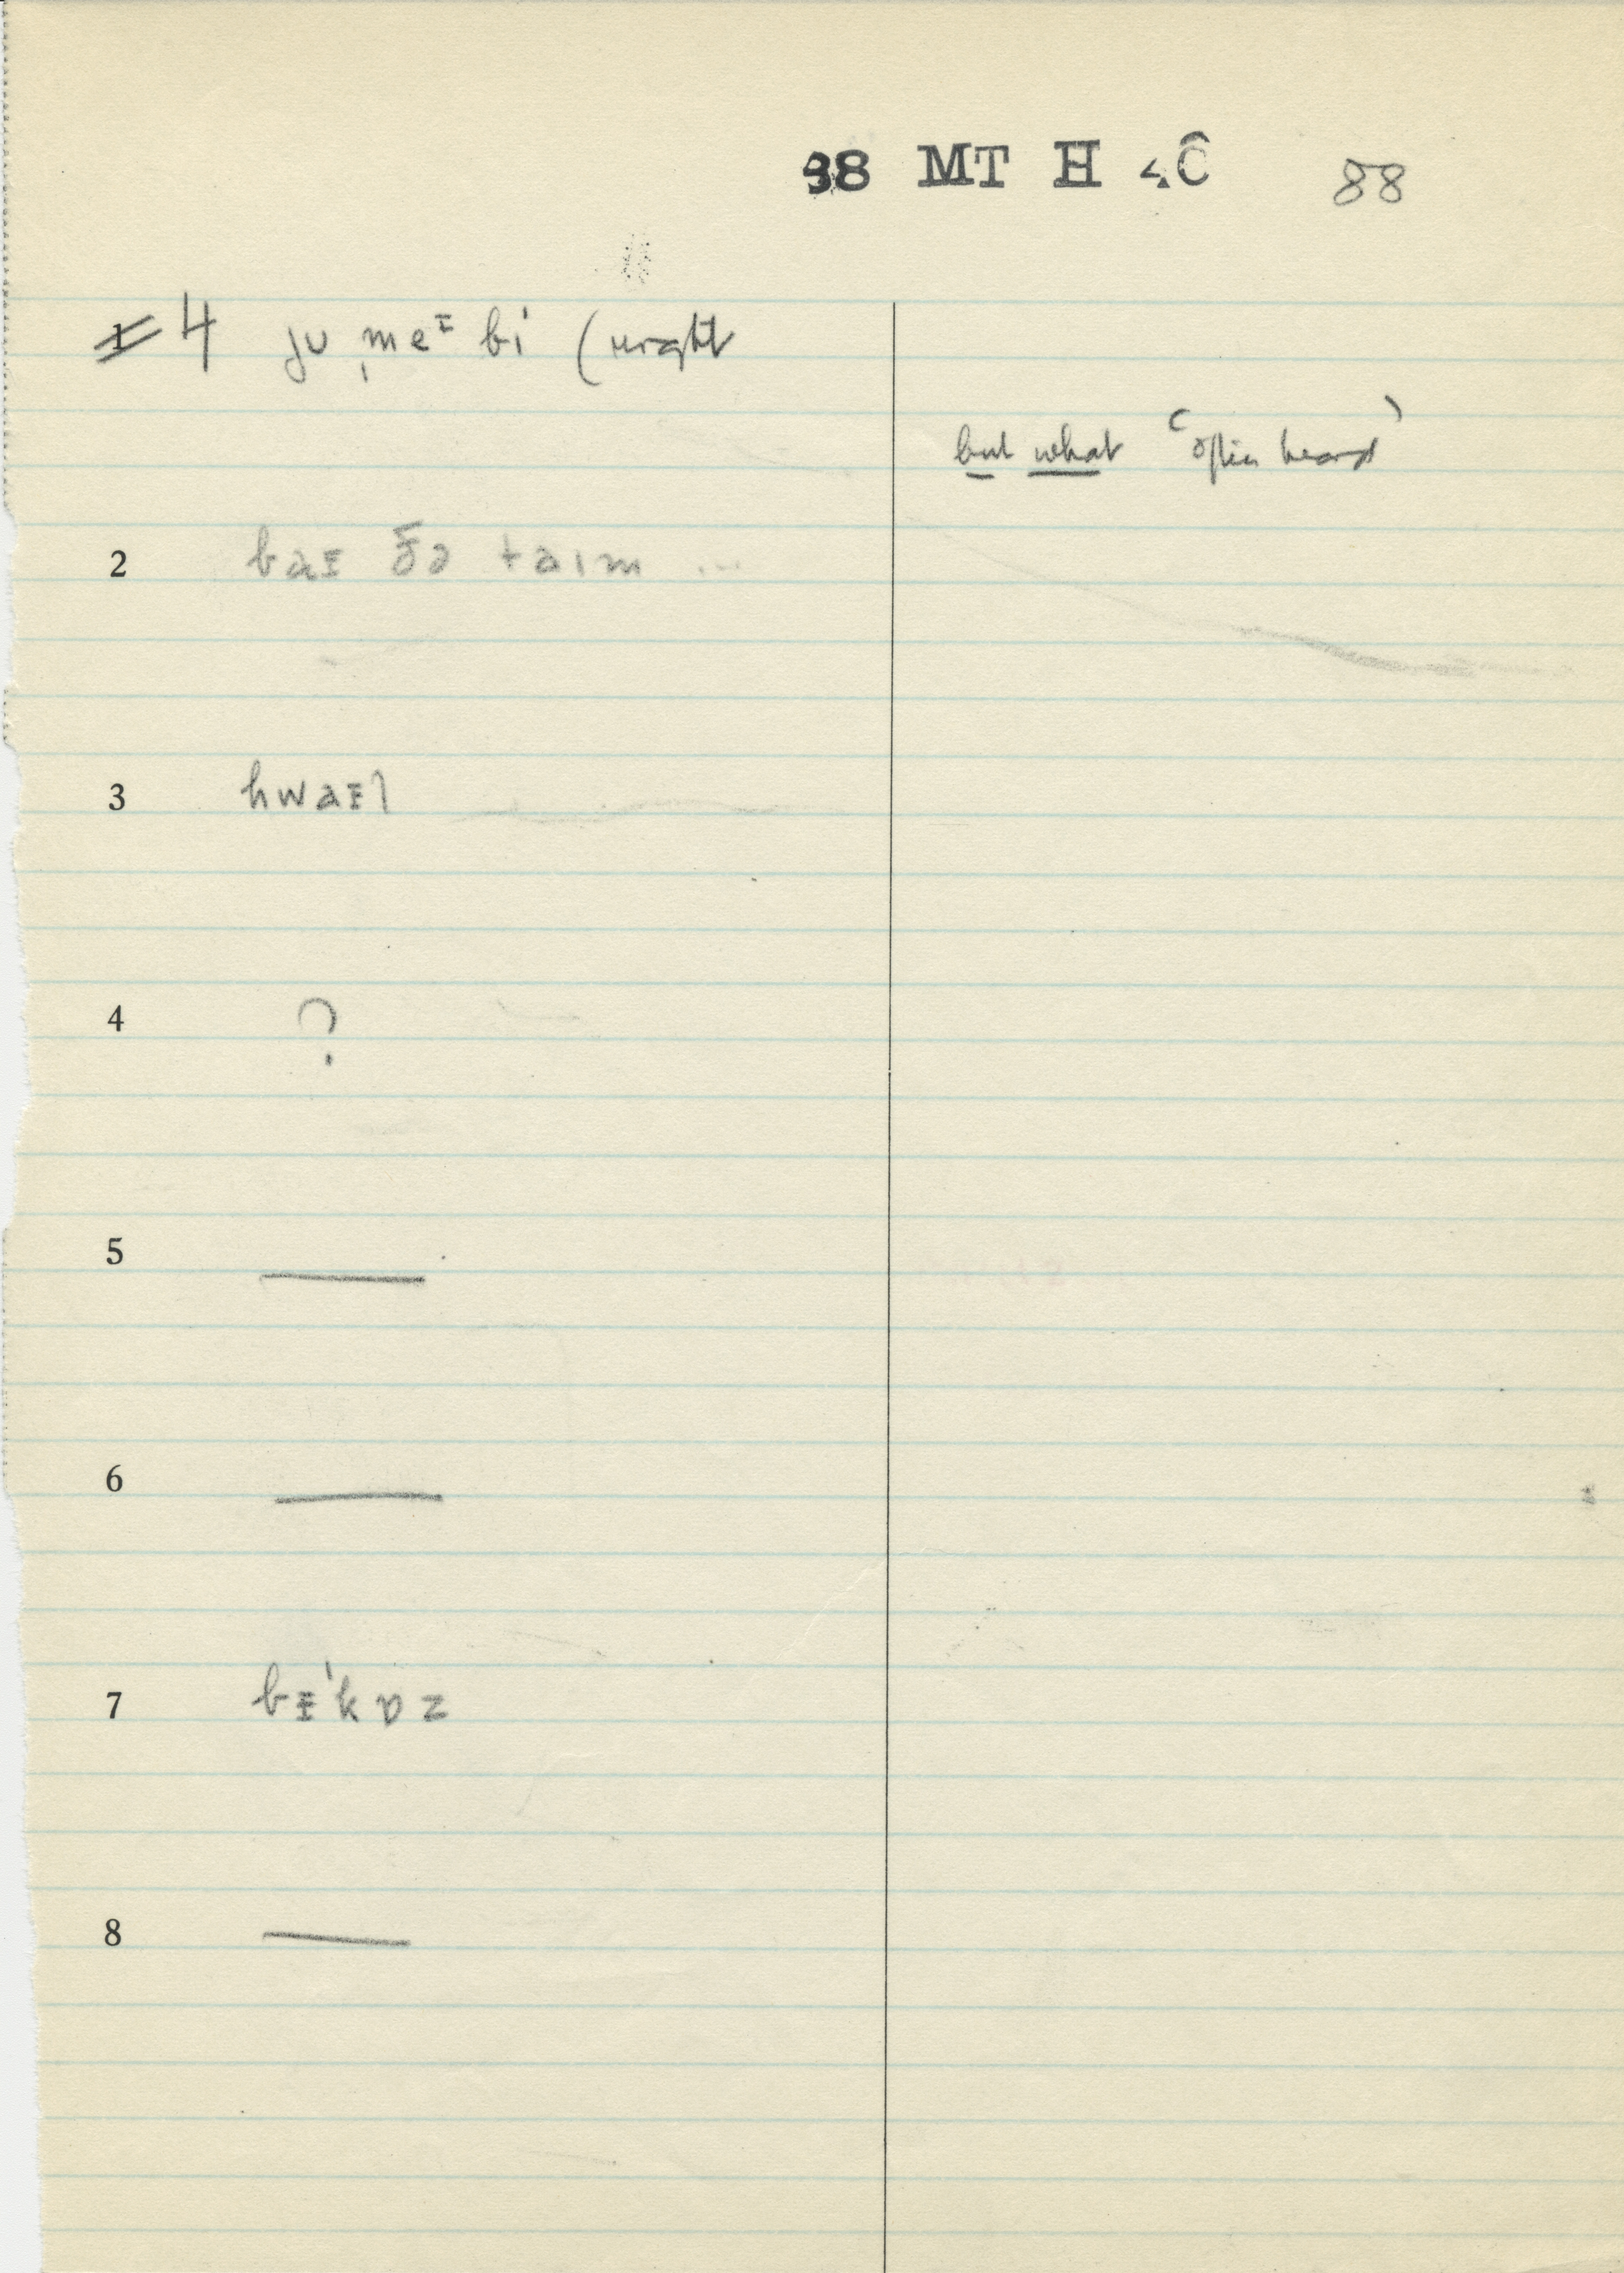 98 MT H 4C 88
4 ju ˌmeɪ bi (might
but what (often heard)
2 baɪ ðə taɪm ...
3 hwaɪl
4 ?
5 —
6 —
7 bɪˈkɒz
8 —